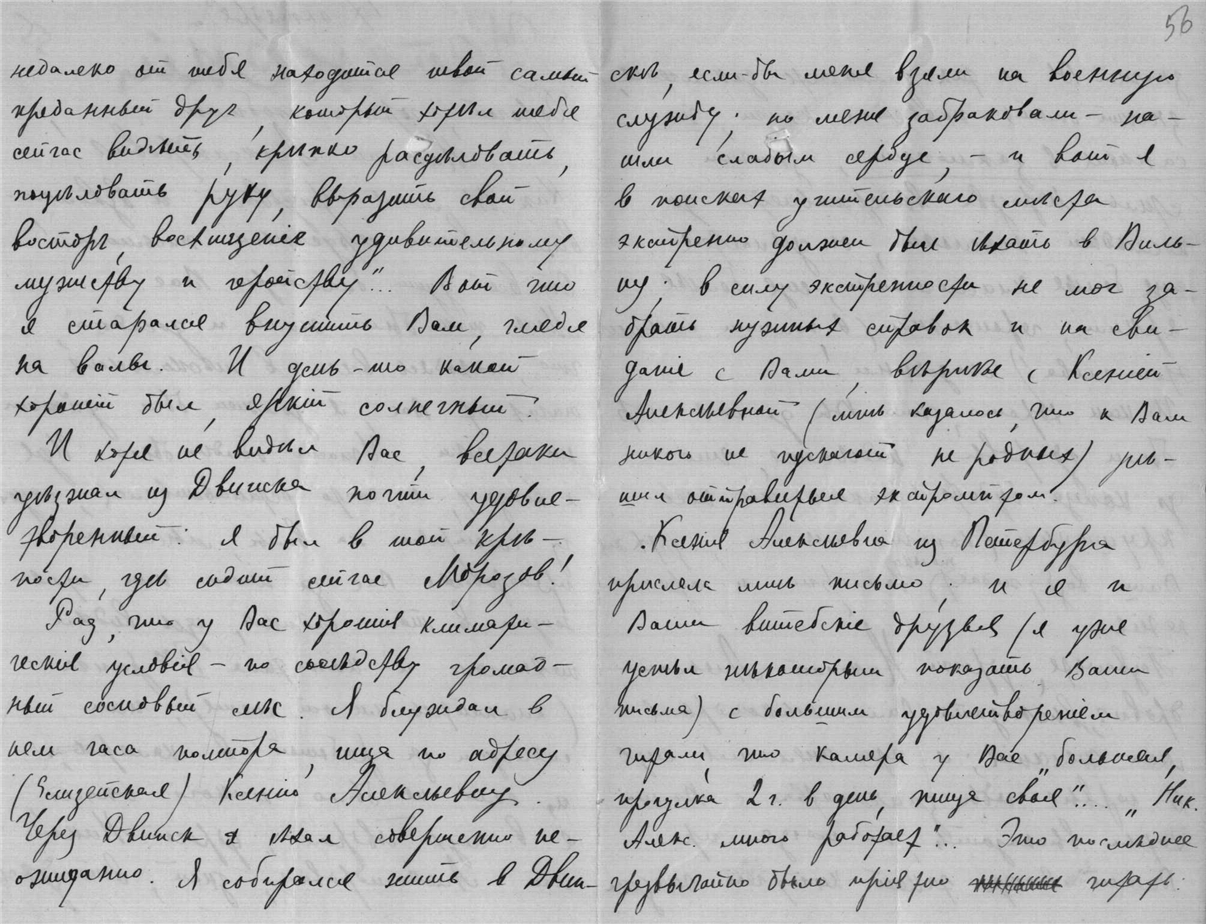 56
недалеко от тебя находится твой самый
преданный друг, который хотѣл тебя
сейчас видѣть, крѣпко расцѣловать,
поцѣловать руку, выразить свой
восторг, восхищение удивительному
мужеству и геройству"... Вот что
я старался внушить Вам, глядя
на валы. И день-то какой
хороший был, яркий солнечный.
И хотя не видѣл Вас, всетаки
уѣзжал из Двинска почти удовле-
творенный: я был в той крѣ-
пости, гдѣ сидит сейчас Морозов!
Рад, что у Вас хорошия климати-
ческия условия — по сосѣдству громад-
ный сосновый лѣс. Я блуждал в
нем часа полтора, ища по адресу
(Елизейская) Ксению Алексѣевну.
Через Двинск я ѣхал совершенно не-
ожиданно. Я собирался жить в Двин-
скѣ, если-бы меня взяли на военную
службу; но меня забраковали — на-
шли слабым сердце, — и вот я
в поисках учительскаго мѣста
экстренно должен был ѣхать в Виль-
ну; в силу экстренности не мог за-
брать нужных справок и на сви-
дание с Вами, вѣрнѣе с Ксенией
Алексѣевной (мнѣ казалось, что к Вам
никого не пускают не родных) рѣ-
шил отправиться экспромтом.
Ксения Алексѣевна из Петербурга
прислала мнѣ письмо; и я и
Ваши витебские друзья (я уже
успѣл нѣкоторым показать Ваши
письма) с большим удовлетворением
читали, что камера у Вас „большая,
прогулка 2 г. в день, пища своя"... „Ник.
Алекс. много работает"... Это последнее
чрезвычайно было приятно читать.